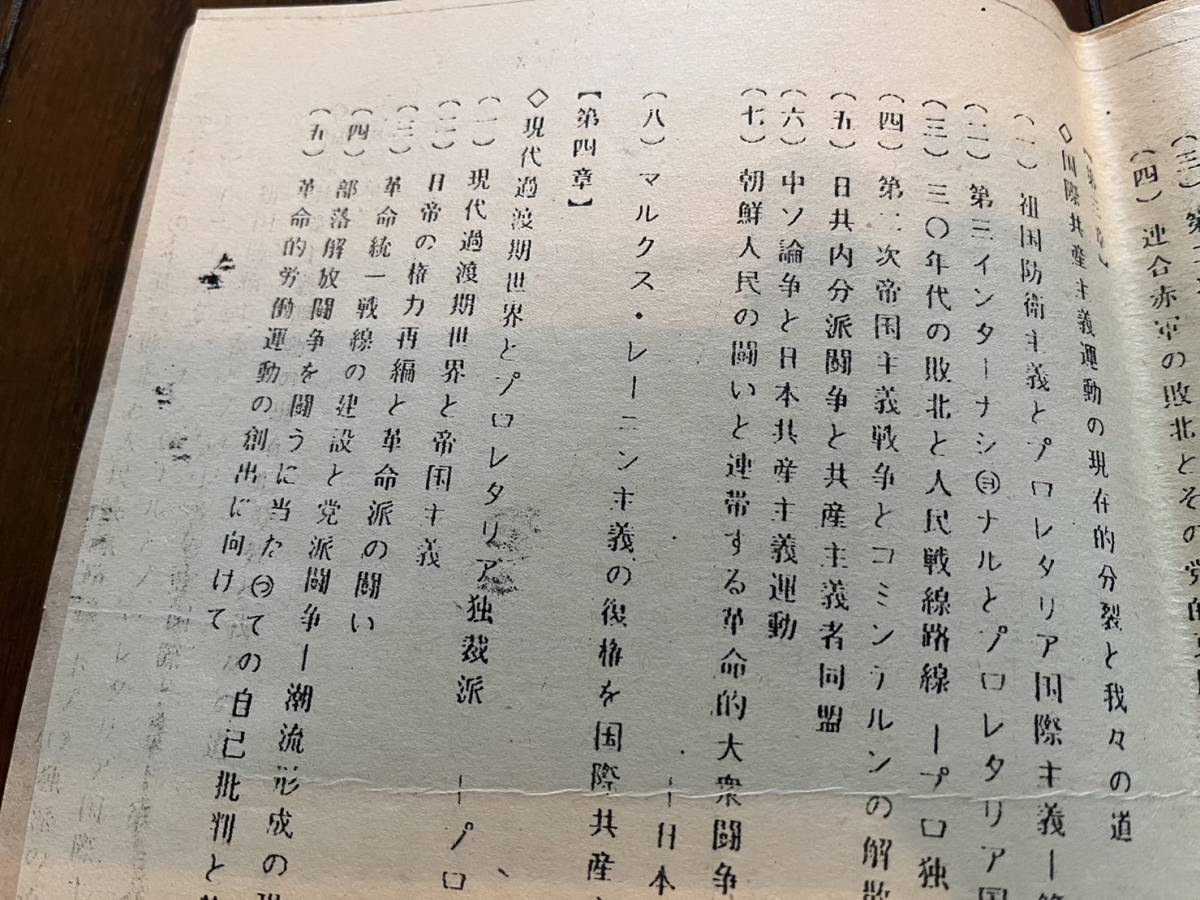 （四）連合赤軍の敗北とその党的
◇国際共産主義運動の現在的分裂と我々の道
（一）祖国防衛主義とプロレタリア国際主義ー
（二）第三インターナショナルとプロレタリア国
（三）三〇年代の敗北と人民戦線路線　ープロ独
（四）第二次帝国主義戦争とコミンテルンの解散
（五）日共内分派闘争と共産主義者同盟
（六）中ソ論争と日本共産主義運動
（七）朝鮮人民の闘いと連帯する革命的大衆闘争
ー日本
（八）マルクス・レーニン主義の復権を国際共産
【第四章】
◇現代過渡期世界とプロレタリア独裁派
（一）現代過渡期世界と帝国主義　ープロ
（二）日帝の権力再編と革命派の闘い
（三）革命統一戦線の建設と党派闘争ー潮流形成の
（四）部落解放闘争を闘うに当たっての自己批判と
（五）革命的労働運動の創出に向けて